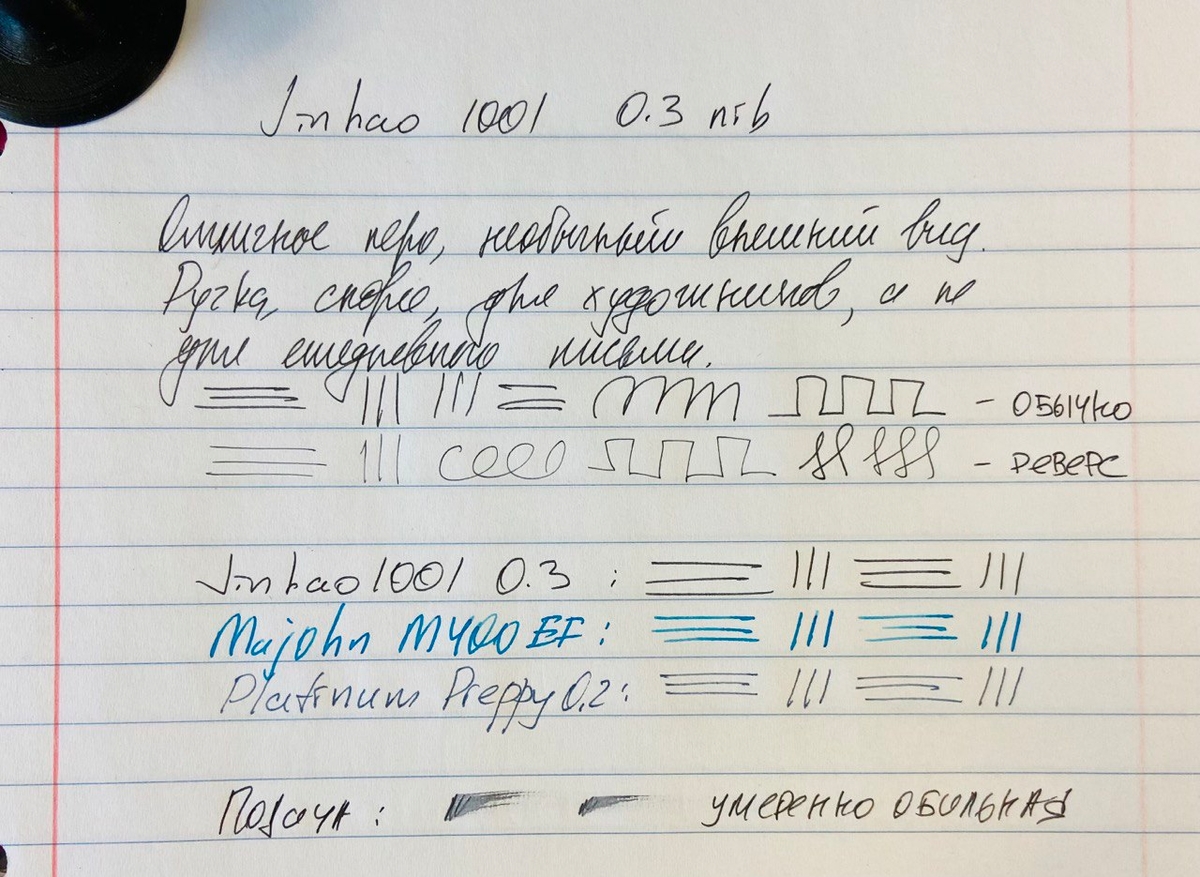 Jinhao 1001 0.3 nib
Отличное перо, необычный внешний вид.
Ручка, скорее, для художников, а не
для ежедневного письма.
- ОБЫЧНО
- РЕВЕРС
Jinhao 1001 0.3 :
Majohn M400 EF :
Platinum Preppy 0.2 :
Подача : УМЕРЕННО ОБИЛЬНАЯ